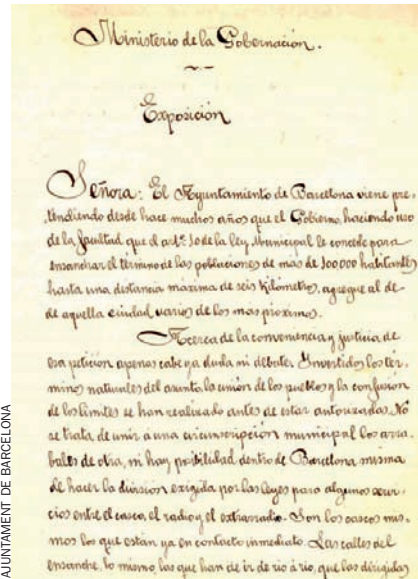 Ministerio de la Gobernación.
Exposición
Señora: El Ayuntamiento de Barcelona viene pre-
tendiendo desde hace muchos años que el Gobierno, haciendo uso
de la facultad que el artº 10 de la ley Municipal le concede para
ensanchar el término de las poblaciones de mas de 100000 habitantes
hasta una distancia máxima de seis kilómetros, agregue al de
de aquella ciudad varios de los mas proximos.
Acerca de la conveniencia y justicia de
esa petición apenas cabe ya duda ni debate. Invertidos los tér-
minos naturales del asunto, la unión de los pueblos y la confusion
de los limites se han realizado antes de estar autorizadas. No
se trata de unir a una circunscripción municipal los arra-
bales de otra, ni hay posibilidad dentro de Barcelona misma
de hacer la división exigida por las leyes para algunos servi-
cios entre el casco, el radio y el extrarradio. Son los cascos mis-
mos los que están ya en contacto inmediato. Las calles del
ensanche, lo mismo las que han de ir de rio á rio, que las dirigidas
AJUNTAMENT DE BARCELONA